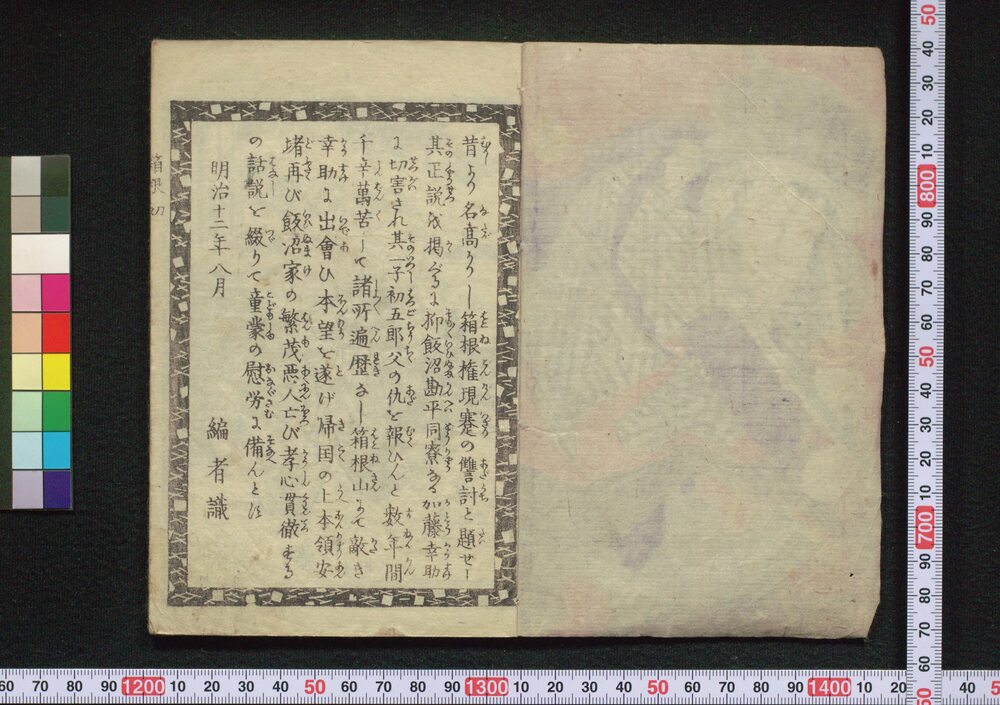 昔より名高かりし箱根権現躄の讐討と題せし
其正説を掲ぐるに抑飯沼勘平同寮なる加藤幸助
に切害され其一子初五郎父の仇を報ひんと数年間
千辛萬苦して諸所遍歴なし箱根山にて敵き
幸助に出會ひ本望を遂げ帰国の上本領安
堵再び飯沼家の繁茂悪人亡び孝心貫徹する
の話説を綴りて童蒙の慰労に備んと云
明治十二年八月
編者識
箱根 初